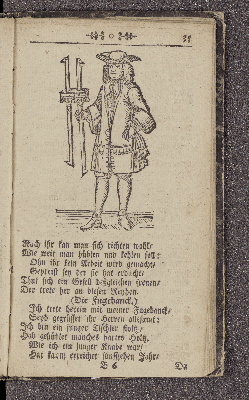 -❧ o ❧- 35
Nach ihr kan man sich richten wohl/
Wie weit man hüblen und kehlen soll:
Ohn ihr kein Arbeit wird gemacht/
Gepreist sey der sie hat erdacht
Thut sich ein Gesell deßgleichen freuen/
Der trete her an diesen Reyhen.
(Der Fugebanck.)
Ich trete herein mit meiner Fugebanck/
Seyd gegrüsset ihr Herren allesamt:
Ich bin ein junger Tischler stoltz/
Hab gehüblet manches hartes Holtz.
Wie ich ein junger Knabe war/
Hat kaum erreichet funffzehen Jahr/
B 6 Da